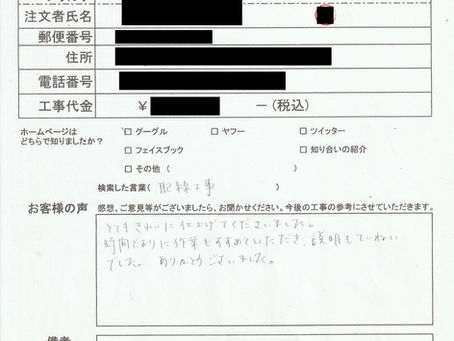 注文者氏名
郵便番号
住所
電話番号
工事代金 ¥ ー(税込)
ホームページは □ グーグル □ ヤフー □ ツイッター
どちらで知りましたか？
□ フェイスブック □ 知り合いの紹介
□ その他 ( )
検索した言葉( 配線工事 )
お客様の声 感想、ご意見等がございましたら、お聞かせください。今後の工事の参考にさせていただきます。
とてもきれいに仕上げてくださいました。
時間どおりに作業をすすめていただき、説明もていねい
でした。 ありがとうございました。
備考